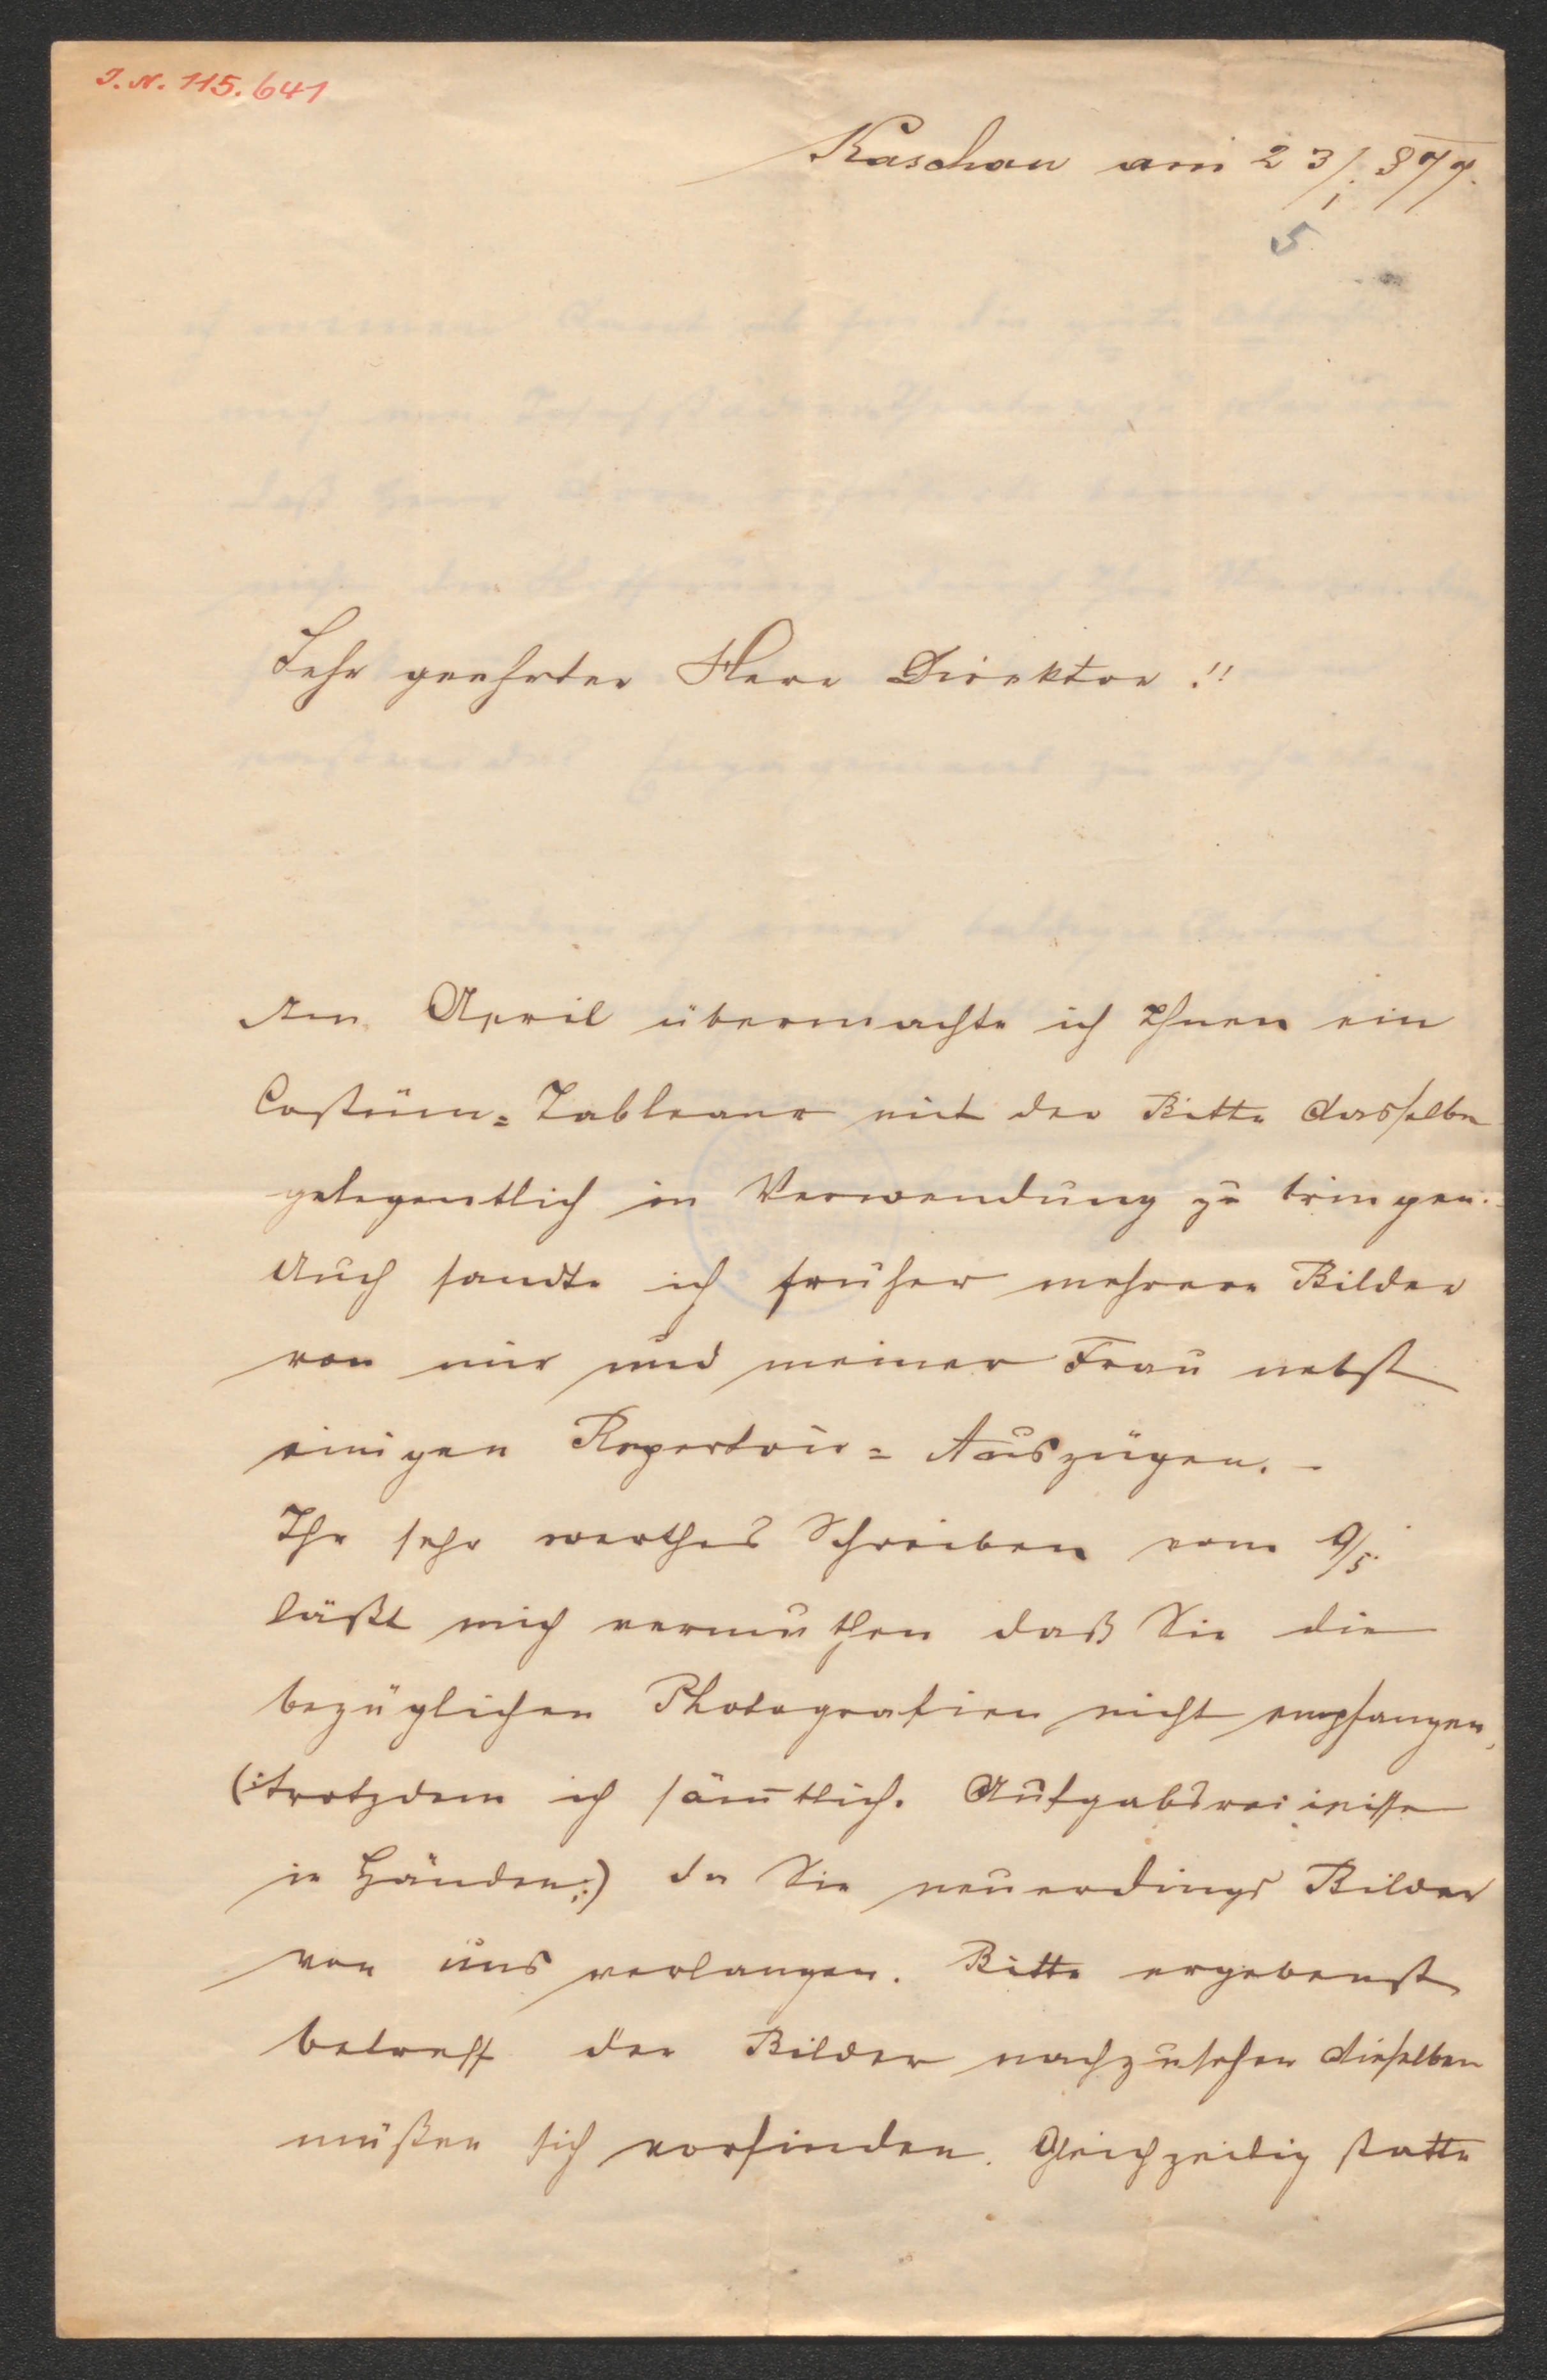 J. N. 115.641
Kaschau am 23/1. 877.
5
Sehr geehrter Herr Direktor!!
Am April übermachte ich Ihnen ein
Costüm=Tableaux mit der Bitte dasselbe
gelegentlich in Verwendung zu bringen.
Auch sandte ich früher mehrere Bilder
von mir und meiner Frau nebst
einigen Repertoir=Auszügen. –
Ihr sehr werthes Schreiben vom 9/5.
läßt mich vermuthen daß Sie die
bezüglichen Photografien nicht empfangen,
(:trotzdem ich säm̄tlich. Aufgabsrecipisse
in Händen:) da Sie neuerdings Bilder
von uns verlangen. Bitte ergebenst
betreff der Bilder nachzusehen dieselben
müßen sich vorfinden. Gleichzeitig statte